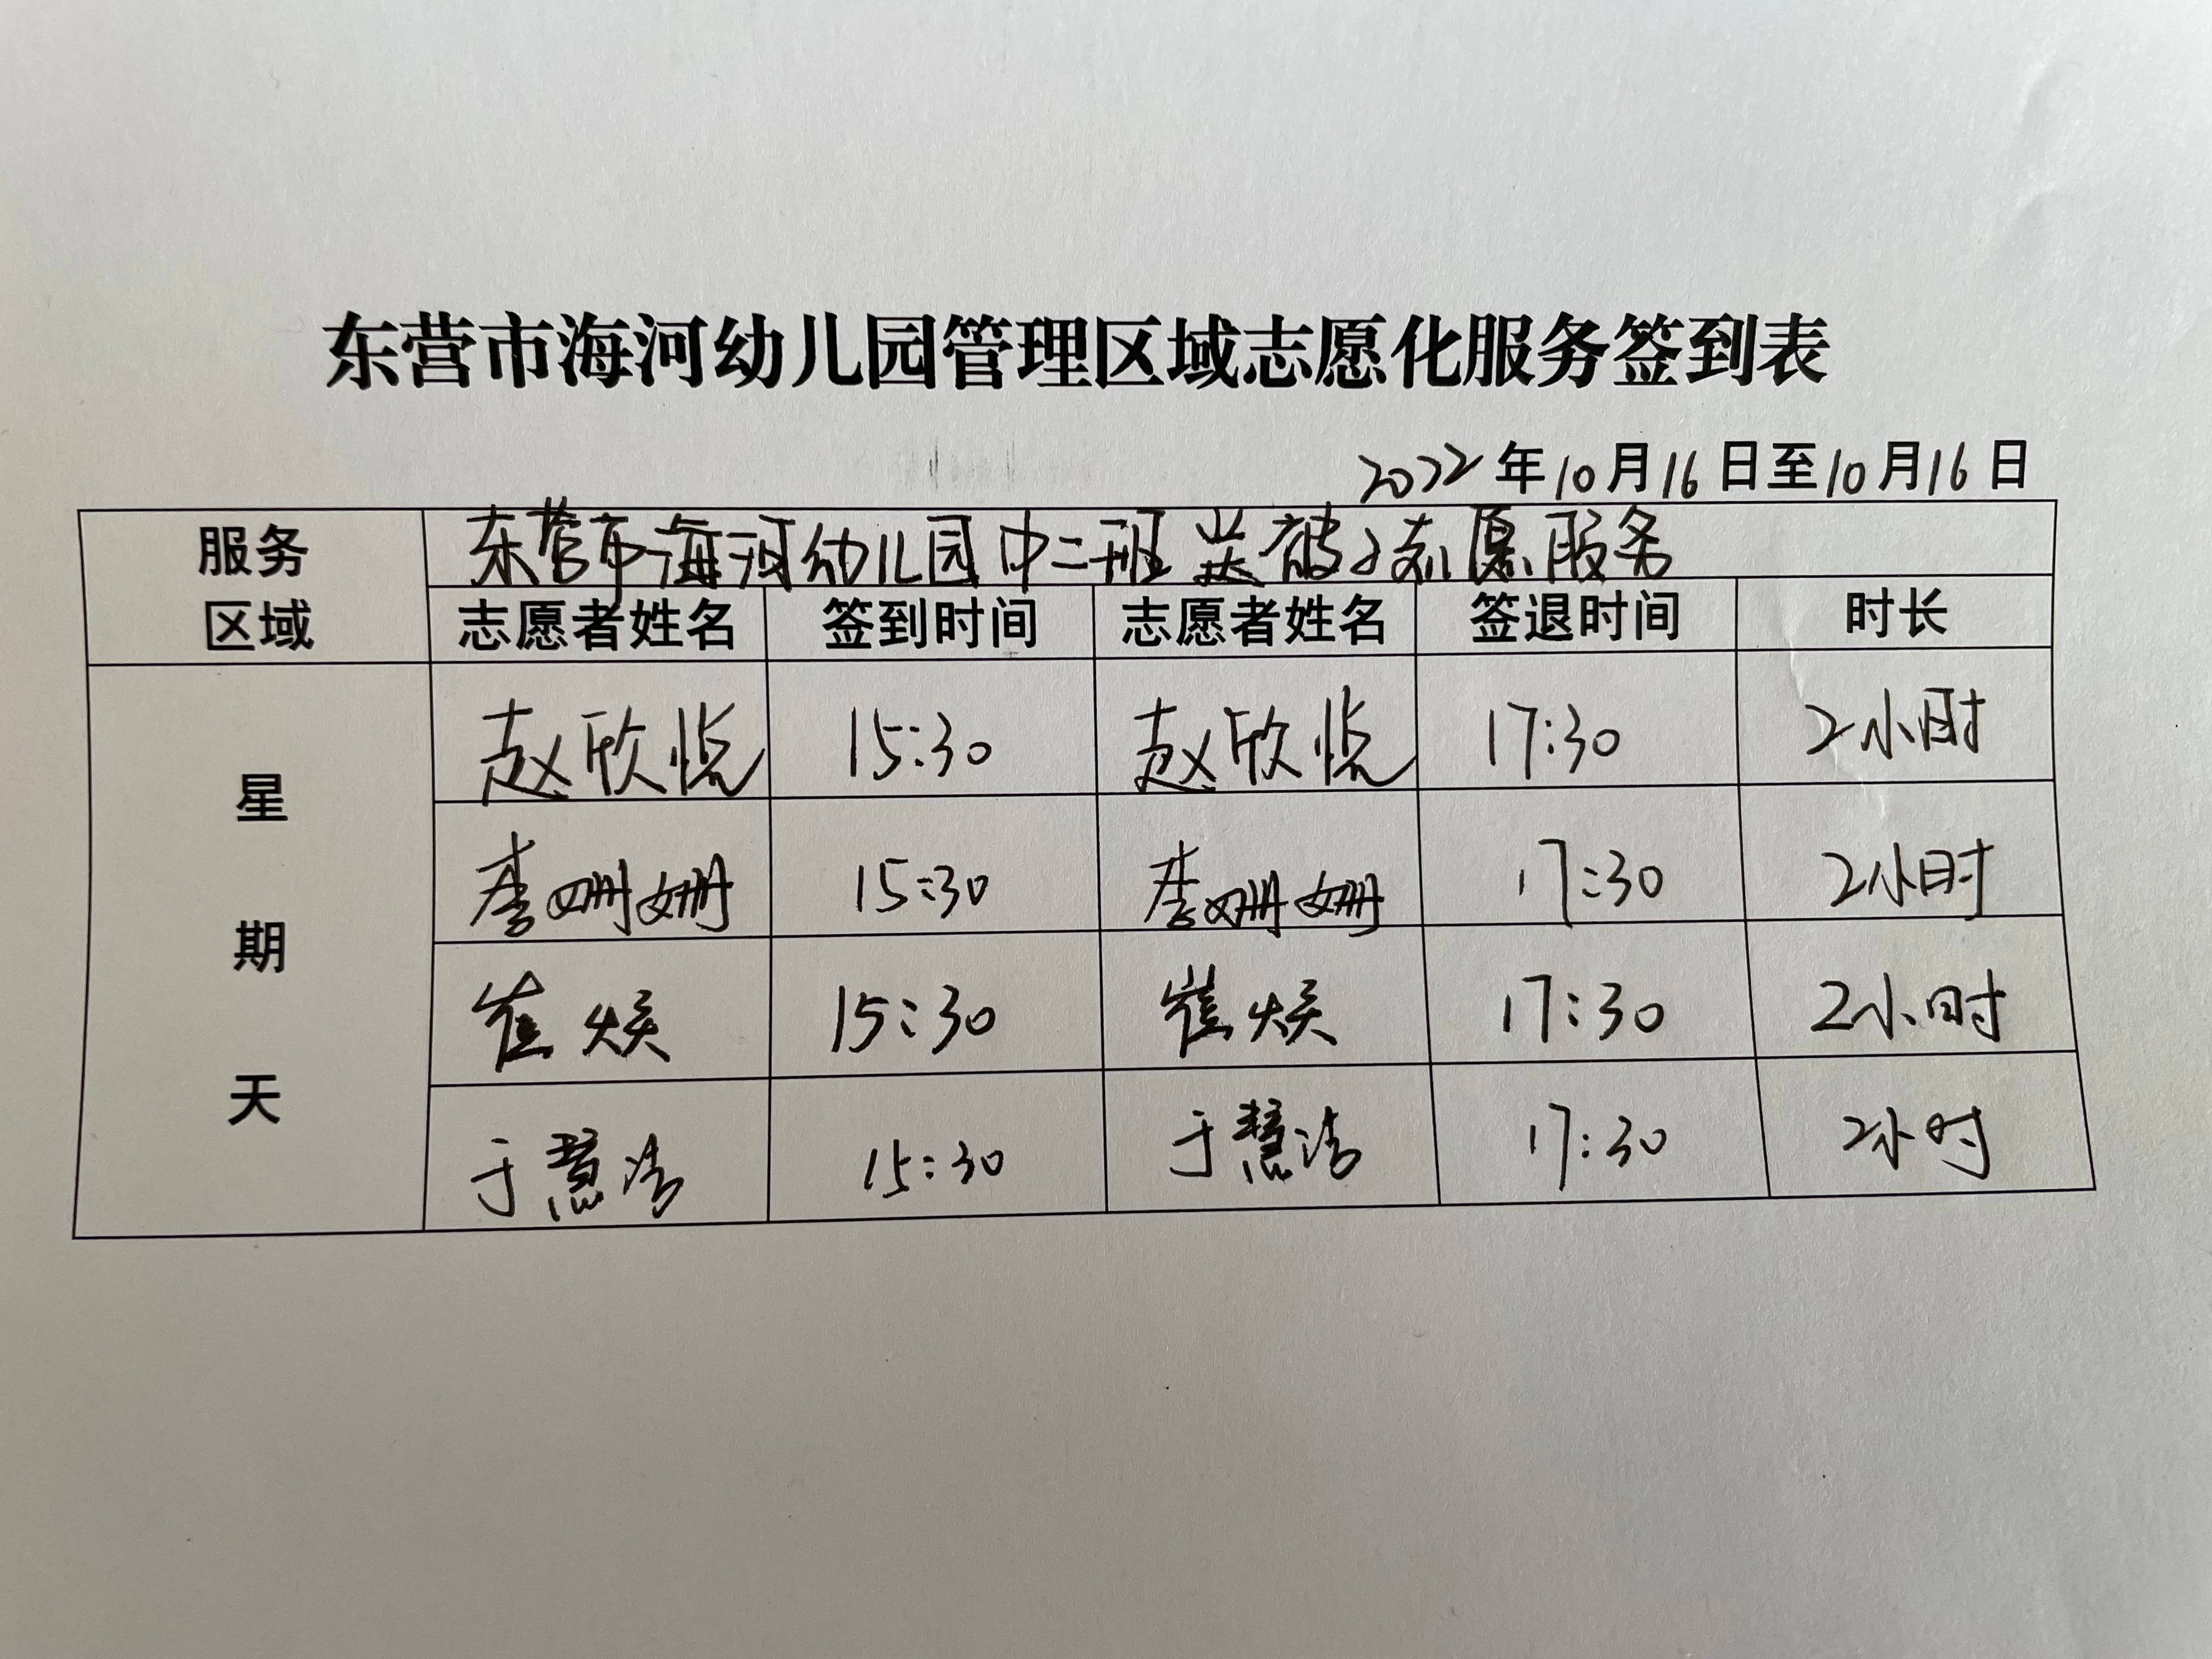 东营市海河幼儿园管理区域志愿化服务签到表
2022年10月16日至10月16日
服务区域 东营市海河幼儿园中二班送被子志愿服务
志愿者姓名 签到时间 志愿者姓名 签退时间 时长
星期天
赵欣悦 15:30 赵欣悦 17:30 2小时
李姗姗 15:30 李姗姗 17:30 2小时
崔焕 15:30 崔焕 17:30 2小时
于慧洁 15:30 于慧洁 17:30 2小时